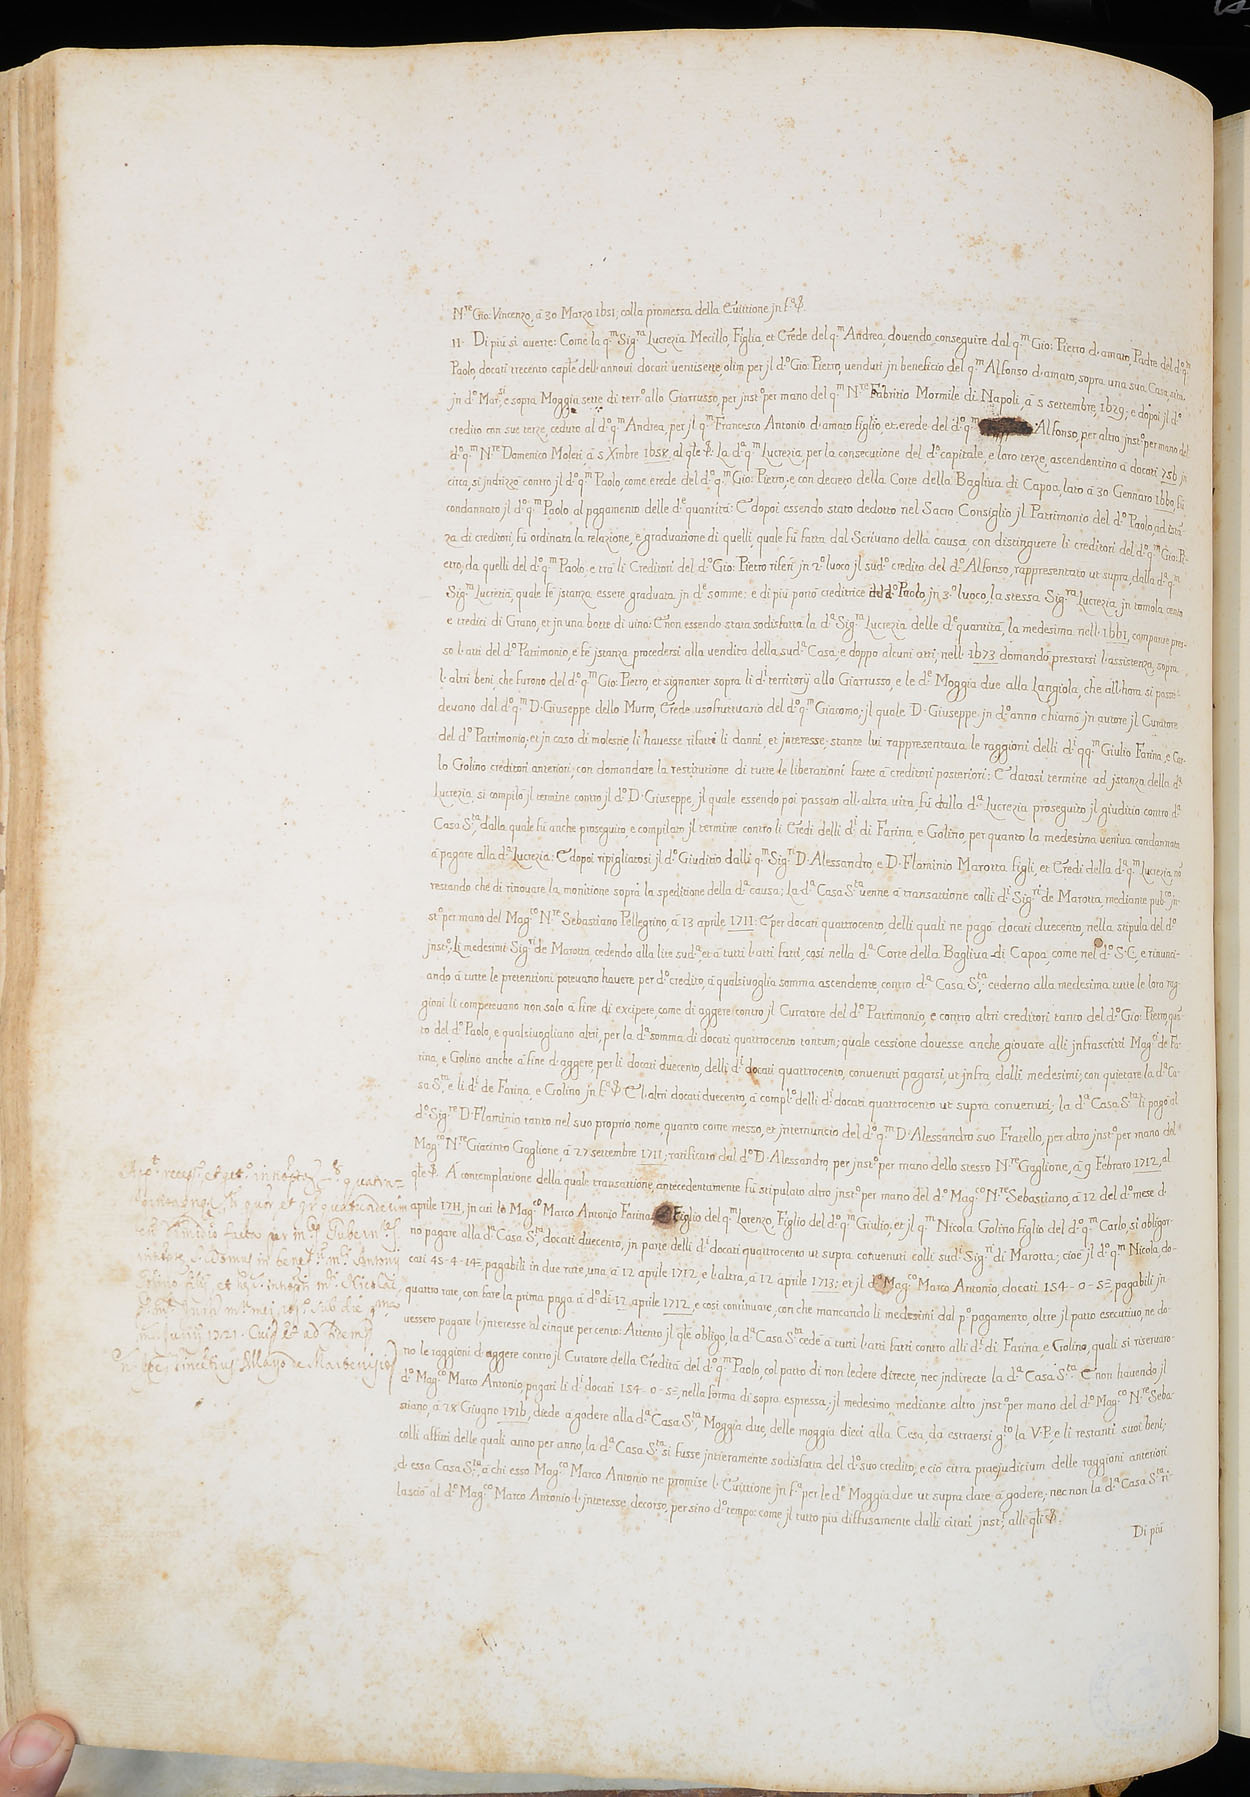 N.re Gio: Vincenzo, à 30 Marzo 1651, colla promessa della Evittione jn f.a
11. Di piu si averte: Come la q.m Sig.ra Lucrezia Mecillo, Figlia, et Erede del q.m Andrea, dovendo conseguire dal q.m Gio: Pietro d'amato, Padre del d.o q.m
Paolo, docati trecento cap.le dell'annoui docati ventisette, olim per jl d.o Gio: Pietro, venduti jn beneficio del q.m Alfonso d'amato, sopra una sua Casa, sita
jn d.o Mar.si, e sopra Moggia sette di terr.o allo Giarrusso, per jnst.o per mano del q.m N.re Fabritio Mormile di Napoli, à 5 settembre, 1629; e dopoi jl d.o
credito con sue terze, ceduto al d.o q.m Andrea, per jl q.m Francesco Antonio d'amato figlio, et erede del d.o q.m Alfonso, per altro jnst.o per mano del
d.o q.m N.re Domenico Moleti à 5 Xmbre 1658, al q.le La d.a q.m Lucrezia per la consecutione del d.o capitale, e loro terze, ascendentino à docati 756 jn
circa, si jndrizzò contro jl d.o q.m Paolo, come erede del d.o q.m Gio: Pietro; e con decreto della Corte della Bagliva di Capoa, lato à 30 Gennaro 1660, fù
condannato jl d.o q.m Paolo al pagamento delle d.e quantità: E dopoi essendo stato dedotto nel Sacro Consiglio jl Patrimonio del d.o Paolo, ad jstã-
za di creditori, fù ordinata la relazione, e graduatione di quelli, quale fù fatta dal Scrivano della causa, con distinguere li creditori del d.o q.m Gio: Pi-
etro, da quelli del d.o q.m Paolo: e trà li Creditori del d.o Gio: Pietro riferì jn 2.o luoco jl sud.o credito del d.o Alfonso, rappresentato ut supra, dalla d.a q.m
Sig.ra Lucrezia, quale fè jstanza essere graduata jn d.e somme: e di più portò creditrice del d.o Paolo, jn 3.o luoco, la stessa Sig.ra Lucrezia, jn tomola cento
e tredici di Grano, et jn una botte di vino: E non essendo stata sodisfatta la d.a Sig.ra Lucrezia delle d.e quantità, la medesima nell'1661, comparve pres-
so l'atti del d.o Patrimonio, e fè jstanza procedersi alla vendita della sud.a Casa; e doppo alcuni atti, nell'1673 domandò prestarsi l'assistenza, sopra
l'altri beni, che furono del d.o q.m Gio: Pietro, et signanter sopra li d.i territorij allo Giarrusso, e le d.e Moggia due alla Langiola, che all'hora si posse-
devano dal d.o q.m D. Giuseppe dello Mutto, Erede usofruttuario del d.o q.m Giacomo; jl quale D. Giuseppe jn d.o anno chiamò jn autore jl Curatore
del d.o Patrimonio, et jn caso di molestie, li havesse rifatti li danni, et jnteresse; stante lui rappresentava le raggioni delli d.i qq.m Giulio Farina, e Car-
lo Golino creditori anteriori, con domandare la restitutione di tutte le liberationi fatte à creditori posteriori: E datosi termine ad jstanza della d.a
Lucrezia, si compilò jl termine contro jl d.o D. Giuseppe, jl quale essendo poi passato all'altra vita, fù dalla d.a Lucrezia proseguito jl giuditio contro d.a
Casa S.ta, dalla quale fù anche proseguito, e compilato jl termine contro li Eredi delli d.i di Farina, e Golino, per quanto la medesima veniva condannata
à pagare alla d.a Lucrezia: E dopoi ripigliatosi jl d.o Giuditio dalli q.m Sig.ri D. Alessandro, e D. Flaminio Marotta figli, et Eredi della d.a q.m Lucrezia, nõ
restando che di rinovare la monitione sopra la speditione della d.a causa; la d.a Casa S.ta venne à transattione colli d.i Sig.ri de Marotta, mediante pub.co jn-
st.o per mano del Mag.co N.re Sebastiano Pellegrino, à 13 aprile 1711: E per docati quattrocento, delli quali ne pagò docati duecento, nella stipula del d.o
jnst.o; Li medesimi Sig.ri de Marotta, cedendo alla lite sud.a, et à tutti l'atti fatti, così nella d.a Corte della Bagliva di Capoa, come nel d.o S. C., e rinunci-
ando à tutte le pretentioni potevano havere per d.o credito, à qualsivoglia somma ascendente, contro d.a Casa S.ta; cederno alla medesima tutte le loro rag-
gioni li competevano non solo à fine di excipere, come di aggere contro jl Curatore del d.o Patrimonio, e contro altri creditori tanto del d.o Gio: Pietro, quã-
to del d.o Paolo, e qualsivogliano altri, per la d.a somma di docati quattrocento tantum; quale cessione dovesse anche giovare alli jnfrascritti Mag.ci de Fa-
rina, e Golino anche à fine d'aggere, per li docati duecento, delli d.i docati quattrocento, convenuti pagarsi, ut jnfra, dalli medesimi; con quietare la d.a Ca-
sa S.ta, e li d.i de Farina, e Golino jn f.a E l'altri docati duecento, à compl.o delli d.i docati quattrocento ut supra convenuti; la d.a Casa S.ta li pagò al
d.o Sig.re D. Flaminio tanto nel suo proprio nome, quanto come messo, et jnternuncio del d.o q.m D. Alessandro suo Fratello, per altro jnst.o per mano del
Mag.co N.re Giacinto Gaglione, à 27 settembre 1711; ratificato dal d.o D. Alessandro, per jnst.o per mano dello stesso N.re Gaglione, à 9 Febraro 1712, al
q.le A contemplatione della quale transattione, antecedentemente fù stipulato altro jnst.o per mano del d.o Mag.co N.re Sebastiano, à 12 del d.o mese d'
aprile 1711, jn cui lo Mag.co Marco Antonio Farina Figlio del q.m Lorenzo, Figlio del d.o q.m Giulio, et jl q.m Nicola Golino figlio del d.o q.m Carlo, si obligor-
no pagare alla d.a Casa S.ta, docati duecento, jn parte delli d.i docati quattrocento ut supra convenuti colli sud.i Sig.ri di Marotta; cioè jl d.o q.m Nicola, do-
cati 45-4-14=, pagabili in due rate, una, à 12 aprile 1712, e l'altra, à 12 aprile 1713; et jl d.o Mag.co Marco Antonio, docati 154-0-5=, pagabili jn
quattro rate, con fare la prima paga à d.o dì 12 aprile 1712, e così continuare, con che mancando li medesimi dal p.o pagamento, oltre jl patto esecutivo, ne do-
vessero pagare l'jnteresse al cinque per cento: Attento jl q.le obligo, la d.a Casa S.ta cedè à tutti l'atti fatti contro alli d.i di Farina, e Golino, quali si riservaro-
no le raggioni d'aggere contro jl Curatore della Eredità del d.o q.m Paolo, col patto di non ledere directe, nec jndirecte la d.a Casa S.ta. E non havendo jl
d.o Mag.co Marco Antonio, pagati li d.i docati 154-0-5=, nella forma di sopra espressa; jl medesimo, mediante altro jnst.o per mano del d.o Mag.co N.re Seba-
stiano, à 28 Giugno 1716, diede a godere alla d.a Casa S.ta, Moggia due, delle moggia dieci alla Cesa, da estraersi g.to la V. P., e li restanti suoi beni;
colli affitti delle quali anno per anno, la d.a Casa S.ta si fusse jntieramente sodisfatta del d.o suo credito, e ciò citra praejudicium delle raggioni anteriori
d'essa Casa S.ta, à chi esso Mag.co Marco Antonio ne promise l'Evittione jn f.a per le d.e Moggia due ut supra date à godere; nec non la d.a Casa S.ta ri-
lasciò al d.o Mag.co Marco Antonio l'jnteresse decorso, per sino d.o tempo: come jl tutto più diffusamente dalli citati jnst.i, alli q.li
Di più
quatra-
quatuordecim
facta per
Domus in benef.
Antonij
Golino filij et Nicolai
sub die
Julij 1721.
Vincentius Mayo de Mardenisio